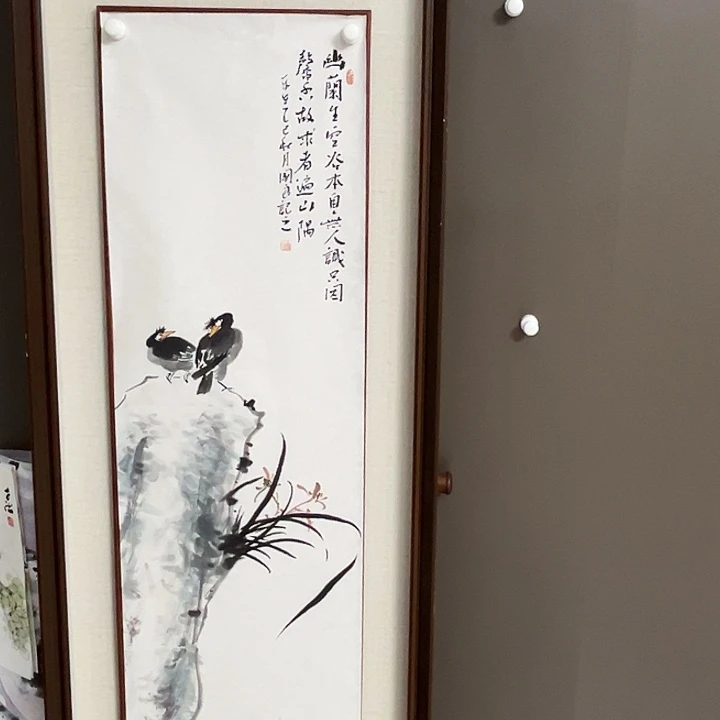 幽蘭生空谷本自無人識只因
馨香故求者遍山隅
乙巳秋月國祥記之